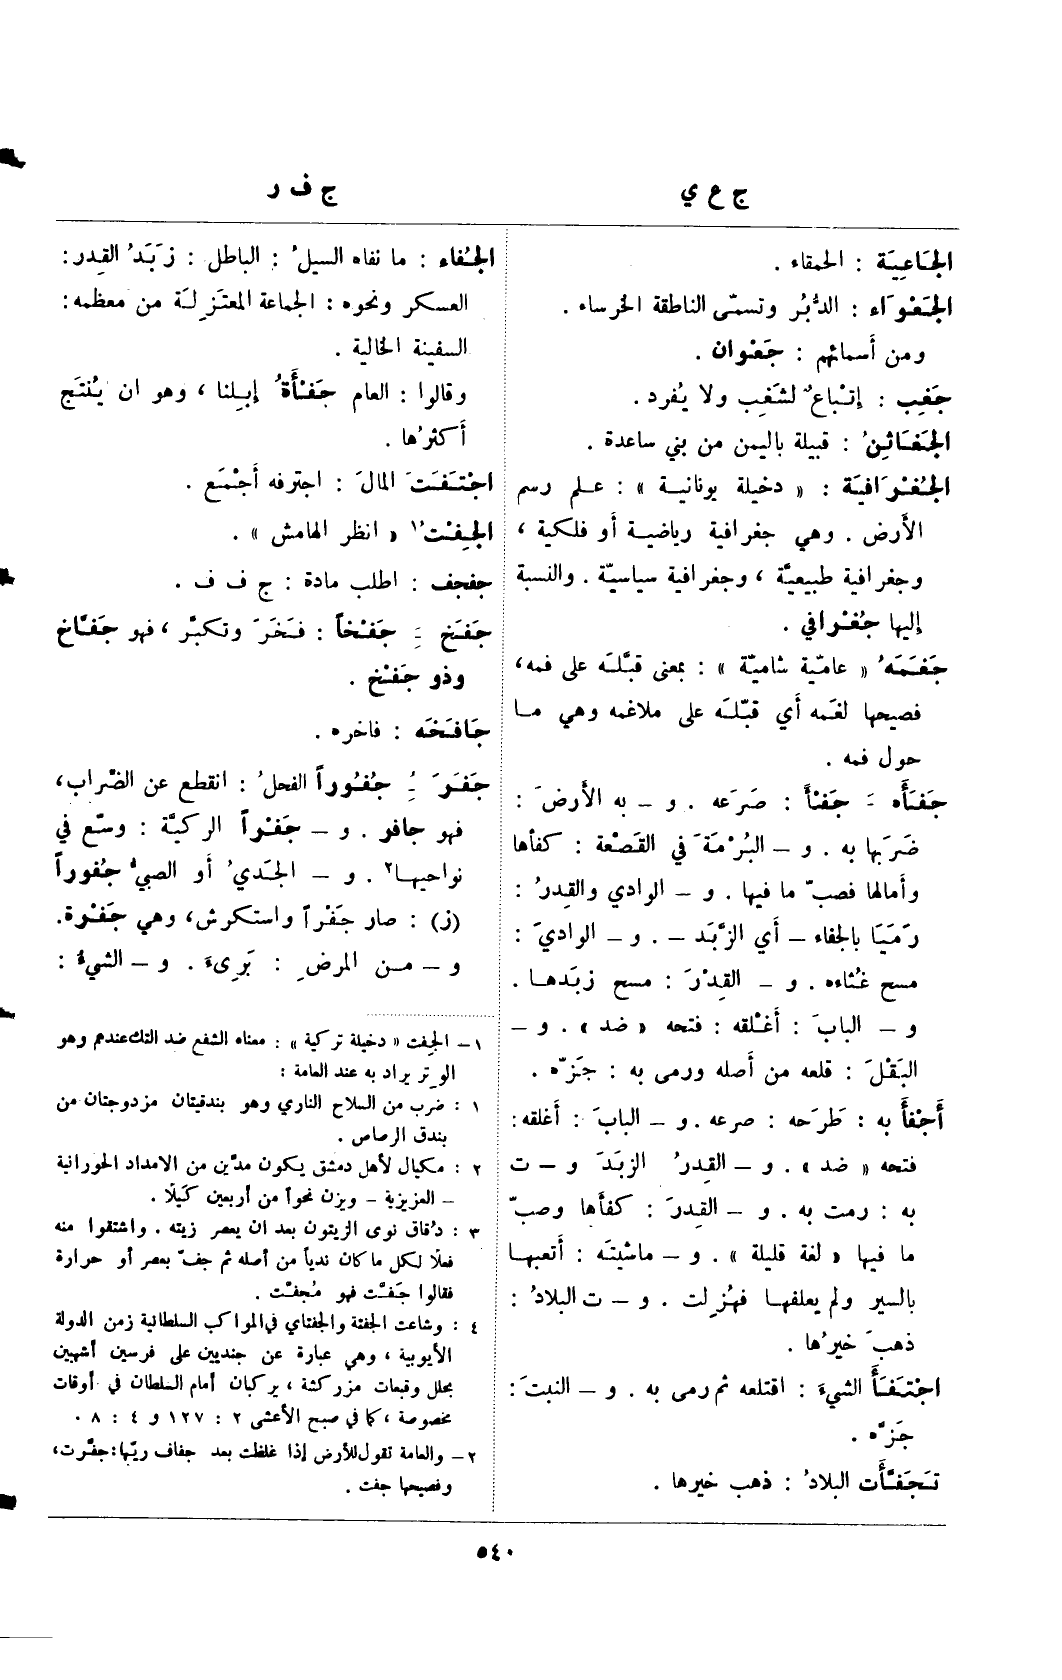 ج ع ي
ج ف ر
الجَاعِيَة : الحمقاء .
الجَعْوَاء : الدُّبُر وتسمّى الناطقة الخرساء .
ومن أسمائهم : جَعْوان .
جَغِب : إتْباعٌ لشَغِب ولا يُفرد .
الجَغَاثِنُ : قبيلة باليمن من بني ساعدة .
الجُغْرَافيَة : « دخيلة يونانية » : علم رسم
الأَرض . وهي جغرافية رياضية أَو فلكية ،
وجغرافية طبيعيَّة ، وجغرافية سياسيّة . والنسبة
إليها جُغْرافي .
جَغَمَهُ « عاميّة شاميّة » : بمعنى قبَّلَه على فمه،
فصيحها لغَمه أَي قبّلَه على ملاغمه وهي ما
حول فمه .
جَفَأَه َ جَفْأً : صَرَعه . و – به الأَرضَ :
ضَرَبها به . و – البُرْمَةَ في القَصْعة : كفأها
وأمالها فصبّ ما فيها . و – الوادي والقِدرُ :
رَمَيَا بالجفاء – أَي الزَّبَد – . و – الواديَ :
مسح غُثاءه . و – القِدْرَ : مسح زبَدها .
و – البابَ : أَغْلقه : فتحه « ضد » . و –
البَقْلَ : قلعه من أَصله ورمى به : جَزّه .
أَجْفأَ به : طَرَحه : صرعه . و – البابَ : أَغلقه:
فتحه « ضد » . و – القدرُ الزبَدَ و – ت
به : رمت به . و – القِدرَ : كفأَها وصبّ
ما فيها « لغة قليلة » . و – ماشيتَه : أَتعبها
بالسير ولم يعلفها فهُزِلت . و – ت البلادُ :
ذهبَ خيرُها .
اجْتَفَأَ الشيءَ : اقتلعه ثم رمى به . و – النبتَ :
جَزَّه .
تجَفَّأَت البلادُ : ذهب خيرها .
الجُفاء : ما نفاه السيلُ : الباطل : زَبَدُ القِدر:
العسكر ونحوه : الجماعة المعتَزِلَة من معظمه:
السفينة الخالية .
وقالوا : العام جَفْأَةُ إبِلنا ، وهو ان يُنتَج
أَكثرُها .
اجْتَفَتَ المالَ : اجترفه أَجْمَع .
الجِفْتُ١ « انظر الهامش » .
جفجف : اطلب مادة : ج ف ف .
جَفَخَ َِ جَفْخاً : فَخَرَ وتكبَّر ، فهو جَفّاخ
وذو جَفْخ .
جَافَخَه : فاخره .
جَفَرَ ُِ جُفُوراً الفحلُ : انقطع عن الضّراب،
فهو جافر . و – جَفْراً الركيَّة : وسَّع في
نواحيها٢ . و – الجَديُ أَو الصبيُّ جُفوراً
(ز) : صار جَفْراً واستكرش، وهي جَفْرة.
و – من المرضِ : بَرِىءَ . و – الشيءُ :
١ – الجِفت « دخيلة تركية » : معناه الشفع ضد التك عندهم وهو
الوِتر يراد به عند العامة :
١ : ضرب من السلاح الناري وهو بندقيتان مزدوجتان من
بندق الرصاص .
٢ : مكيال لأهل دمشق يكون مدّين من الامداد الحورانية
– العزيزية – ويزن نحواً من أربعين كَيلًا .
٣ : دُقاق نوى الزيتون بعد ان يعصر زيته . واشتقوا منه
فعلًا لكل ما كان ندياً من أصله ثم جفّ بعصر أو حرارة
فقالوا جَفَّت فهو مُجفّت .
٤ : وشاعت الجفتة والجفتاي في المواكب السلطانية زمن الدولة
الأيوبية ، وهي عبارة عن جنديين على فرسين أشهبين
بحلل وقبعات مزركشة ، يركبان أمام السلطان في أوقات
مخصوصة ، كما في صبح الأعشى ٢ : ١٢٧ و ٤ : ٨ .
٢ – والعامة تقول للأرض إذا غلظت بعد جفاف ريّها: جفَّرت،
وفصيحها جفت .
٥٤٠